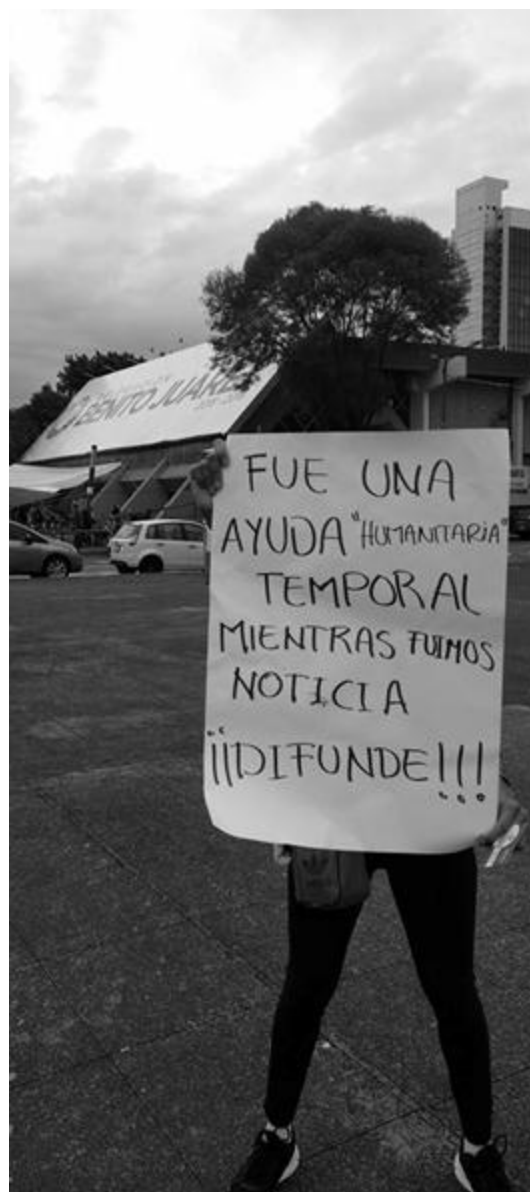 BENITO JUÁREZ
FUE UNA
AYUDA "HUMANITARIA"
TEMPORAL
MIENTRAS FUIMOS
NOTICIA
¡¡DIFUNDE!!!